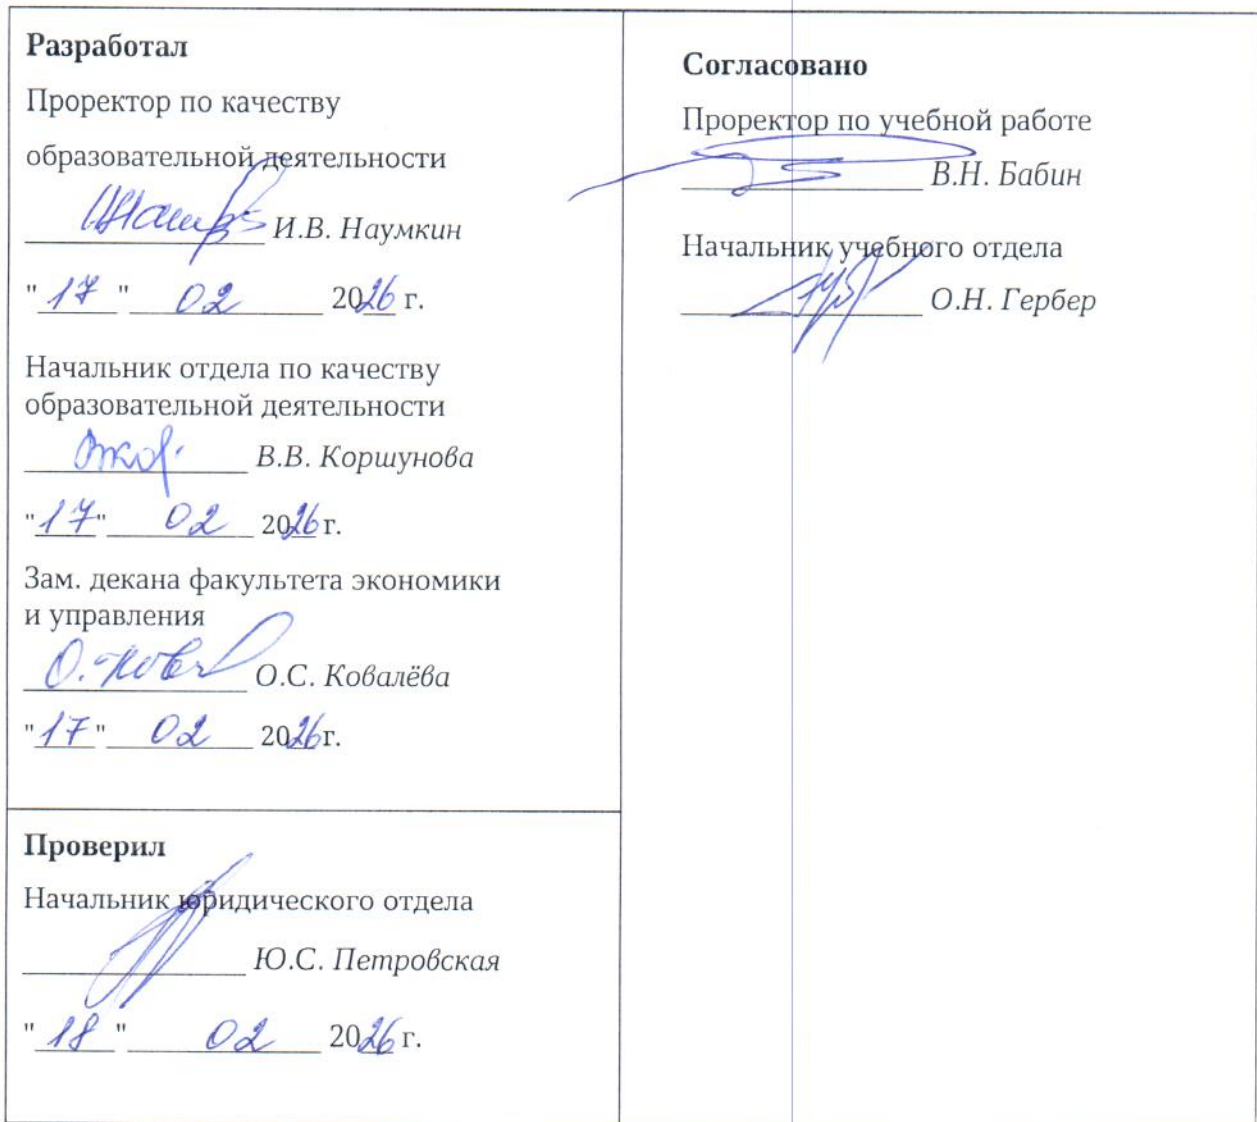 Разработал
Проректор по качеству
образовательной деятельности
И.В. Наумкин
"17" 02 2026 г.
Начальник отдела по качеству
образовательной деятельности
В.В. Коршунова
"17" 02 2026 г.
Зам. декана факультета экономики
и управления
О.С. Ковалёва
"17" 02 2026г.
Проверил
Начальник юридического отдела
Ю.С. Петровская
"18" 02 2026 г.
Согласовано
Проректор по учебной работе
В.Н. Бабин
Начальник учебного отдела
О.Н. Гербер